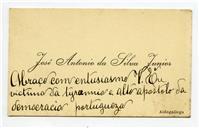 José Antonio da Silva Junior
Abraço com entusiasmo V. Ex.
victima da tyrannia e alto apostolo da
democracia portugueza
Aldegallega